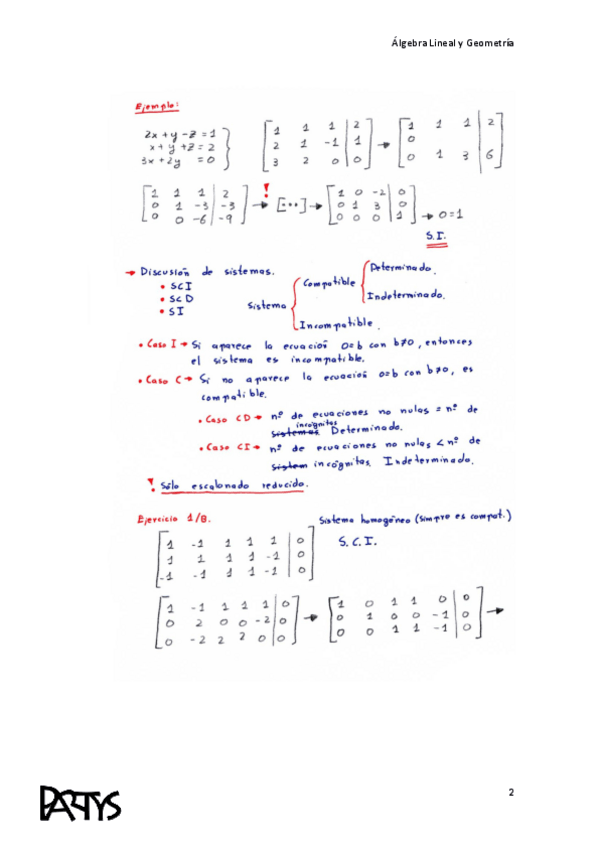 Álgebra Lineal y Geometría
Ejemplo:
2x + y - z = 1
x + y + z = 2
3x + 2y = 0
1 1 1 | 2
2 1 -1 | 1
3 2 0 | 0
→
1 1 1 | 2
0
0 1 3 | 6
1 1 1 | 2
0 1 -3 | -3
0 0 -6 | -9
! → [···] →
1 0 -2 | 0
0 1 3 | 0
0 0 0 | 1
→ 0=1
S.I.
→ Discusión de sistemas.
• SCI
• SCD
• SI
Sistema
Compatible
Determinado.
Indeterminado.
Incompatible.
• Caso I → Si aparece la ecuación 0=b con b≠0, entonces
el sistema es incompatible.
• Caso C → Si no aparece la ecuación 0=b con b≠0, es
compatible.
• Caso CD → nº de ecuaciones no nulas = nº de
incógnitas
sistemas Determinado.
• Caso CI → nº de ecuaciones no nulas < nº de
sistem incógnitas Indeterminado.
! Sólo escalonado reducido.
Ejercicio 1/B.
Sistema homogéneo (simpre es compat.)
S.C.I.
1 -1 1 1 1 | 0
1 1 1 1 -1 | 0
-1 -1 1 1 -1 | 0
1 -1 1 1 1 | 0
0 2 0 0 -2 | 0
0 -2 2 2 0 | 0
→
1 0 1 1 0 | 0
0 1 0 0 -1 | 0
0 0 1 1 -1 | 0
→
PARTYS
2